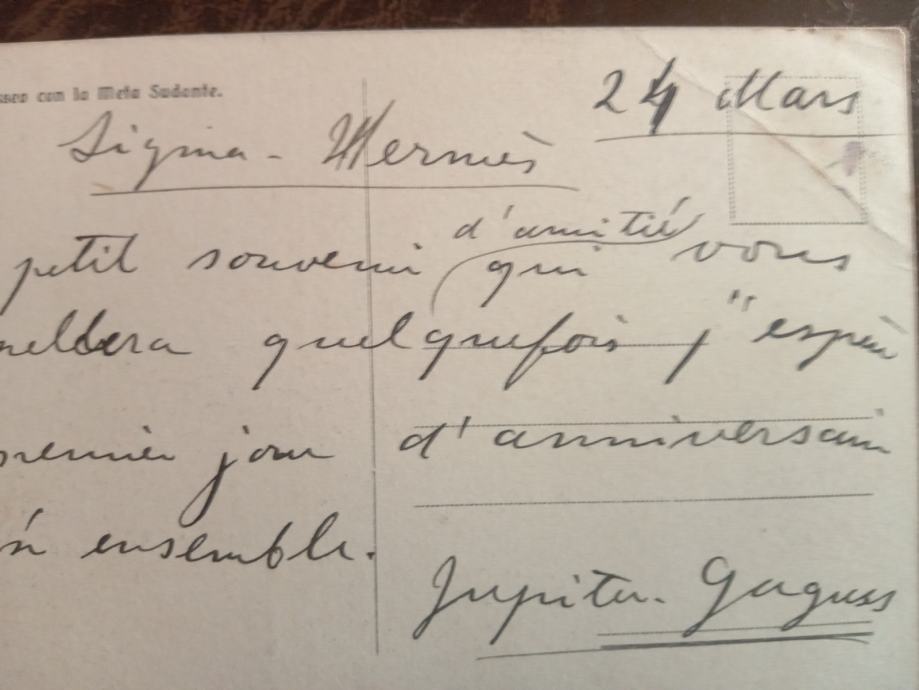 sseo con la Meta Sudante.
24 Mars
Sigma - Hermès
d'amitié
petit souvenir qui vous
quelquefois j'espère
premier jour d'anniversaire
ensemble.
Jupiter. Guguss